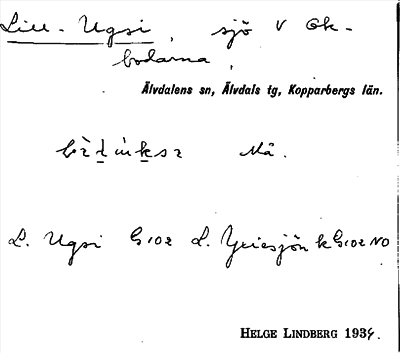 Lill-Ugsi, sjö V Ok-
bodarna,
Älvdalens sn, Älvdals tg, Kopparbergs län.
Må.
L. Ugsi G102 L. Yxiesjön k G102 NO
HELGE LINDBERG 1934.